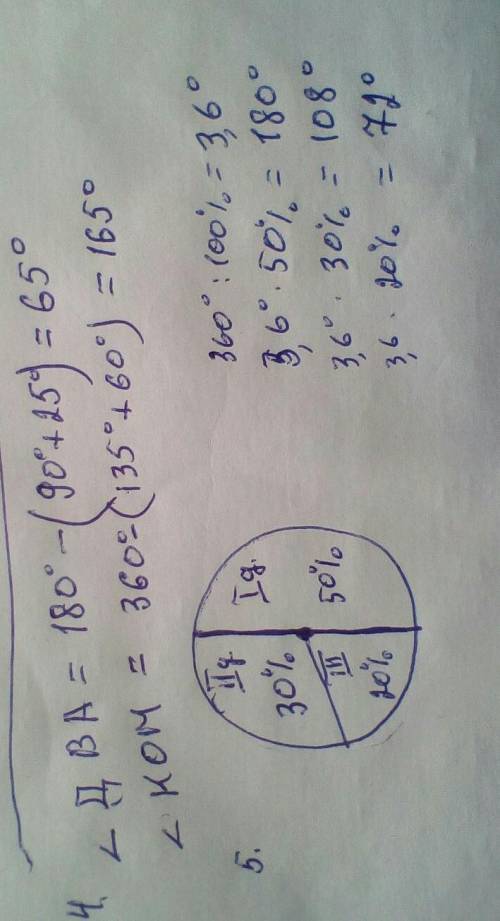 4. ∠ ДВА = 180° - (90° + 25°) = 65°
∠ КОМ = 360° - (135° + 60°) = 165°
5.
II д.
30%
I д.
50%
III
20%
360° : 100% = 3,6°
3,6° · 50% = 180°
3,6° · 30% = 108°
3,6 · 20% = 72°